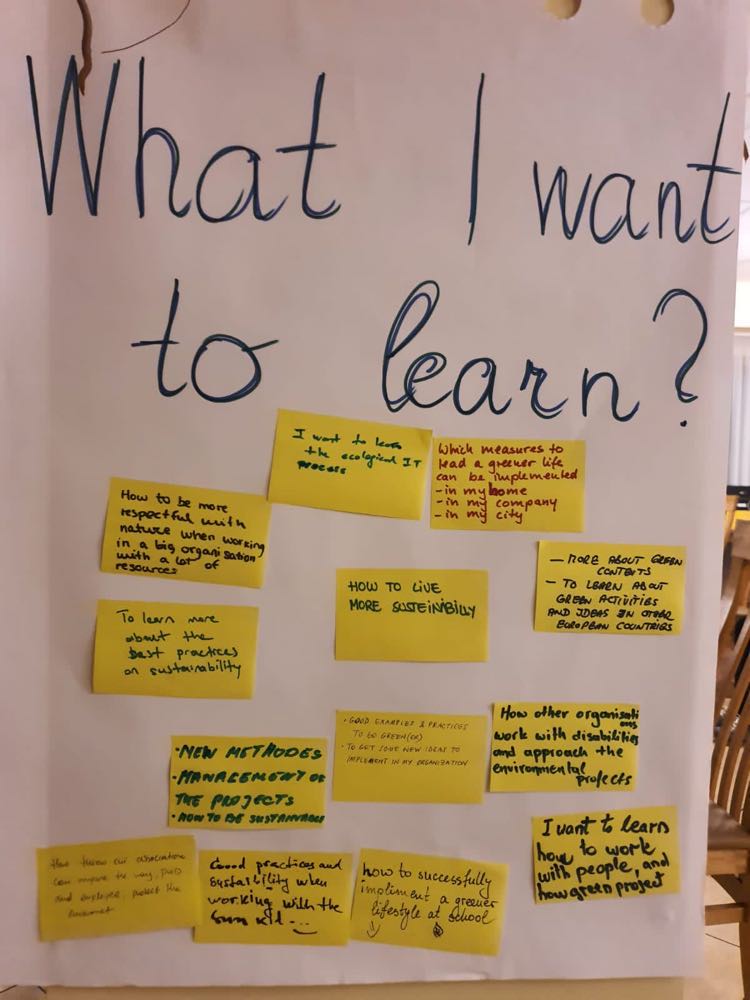 What I want
to learn?
I want to learn
the ecological IT
process
Which measures to
lead a greener life
can be implemented
- in my home
- in my company
- in my city
How to be more
respectful with
nature when working
in a big organisation
with a lot of
resources
HOW TO LIVE
MORE SUSTEINIBILLY
- MORE ABOUT GREEN
CONTENTS
- TO LEARN ABOUT
GREEN ACTIVITIES
AND IDEAS IN OTHER
EUROPEAN COUNTRIES
To learn more
about the
best practices
on sustainability
• NEW METHODES
• MANAGEMENT OF
THE PROJECTS
• HOW TO BE SUSTAINABLE
• GOOD EXAMPLES & PRACTICES
TO GO GREEN(ER)
• TO GET SOME NEW IDEAS TO
IMPLEMENT IN MY ORGANIZATION
How other organisations
work with disabilities
and approach the
environmental
projects
I want to learn
how to work
with people, and
how green project
our associations
can improve the way,
and employee, protect the
Good practices and
when
working with the
how to successfully
impliment a greener
lifestyle at school